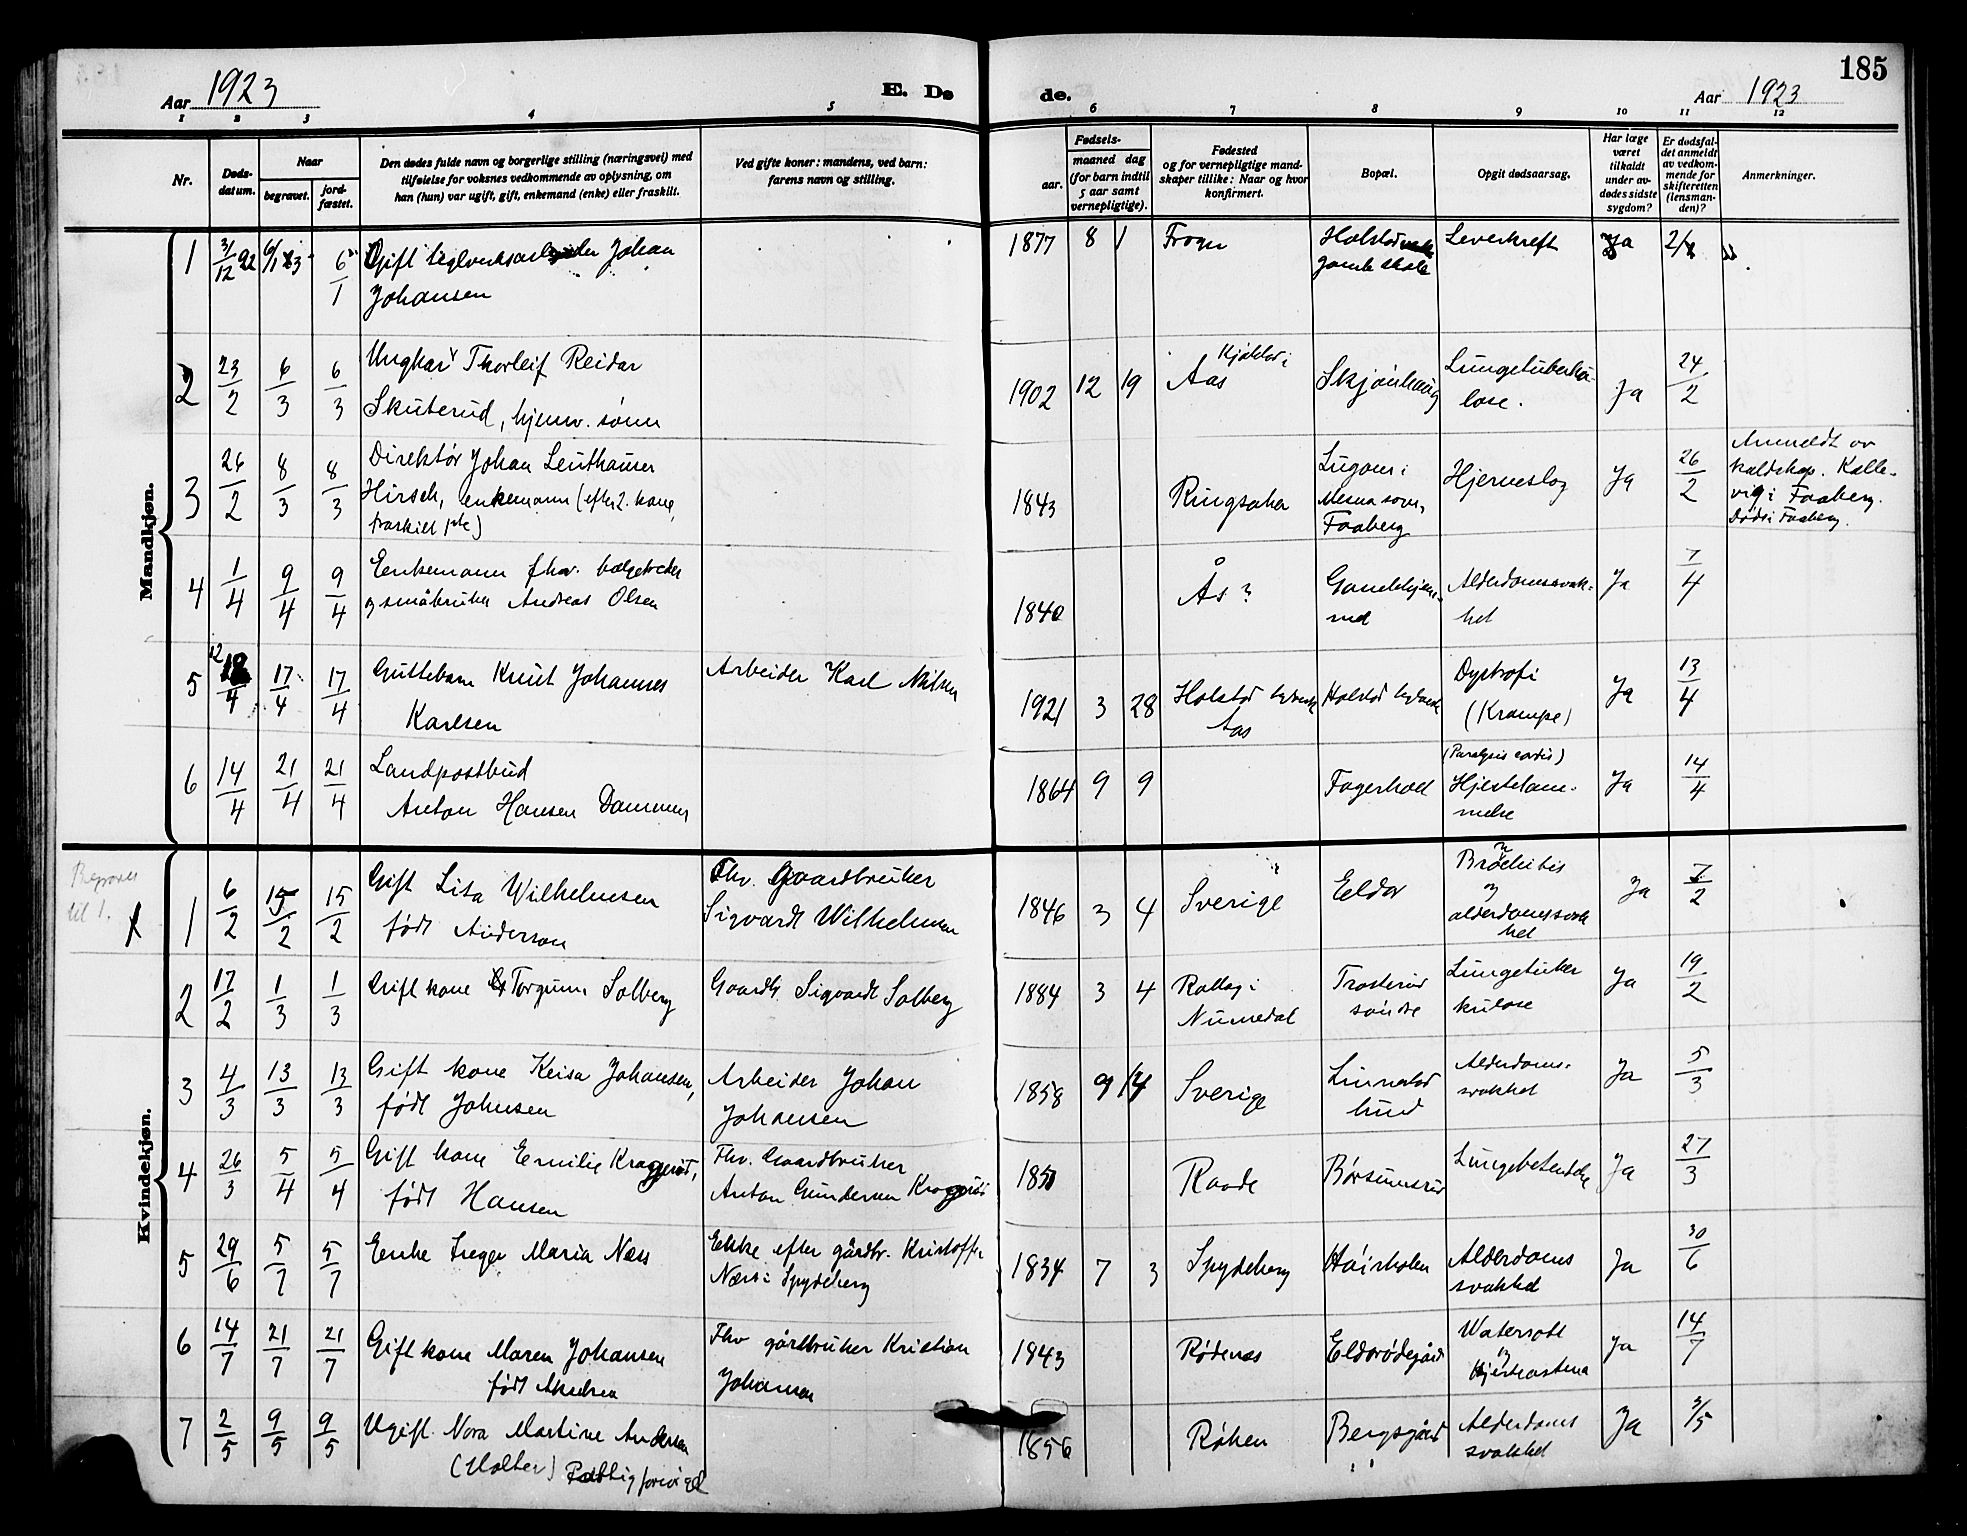 185
Aar 1923
E. Dø
de.
Aar 1923
1 2 3 4 5 6 7 8 9 10 11 12
Nr.
Døds-
datum.
Naar
begravet.
jord-
fæstet.
Den dødes fulde navn og borgerlige stilling (næringsvei) med
tilføielse for voksnes vedkommende av oplysning, om
han (hun) var ugift, gift, enkemand (enke) eller fraskilt.
Ved gifte koner: mandens, ved barn:
farens navn og stilling.
Fødsels-
aar.
maaned dag
(for barn indtil
5 aar samt
vernepligtige).
Fødested
og for vernepligtige mand-
skaper tillike: Naar og hvor
konfirmert.
Bopæl.
Opgit dødsaarsag.
Har læge
været
tilkaldt
under av-
dødes sidste
sygdom?
Er dødsfal-
det anmeldt
av vedkom-
mende for
skifteretten
(lensman-
den)?
Anmerkninger.
Mandkjøn.
1 31/12 22 6/1 23 6/1 Gift teglverksarbeider Johan
Johansen
1877 8 1 Frogn Holstad
gamle skole
Leverkreft Ja
2 23/2 6/3 6/3 Ungkar Thorleif Reidar
Skuterud, hjemv. sønn
1902 12 19 Kjølstad i
Aas
Skjønhaug Lungetuberku-
lose.
Ja 24/2
3 26/2 8/3 8/3 Direktør Johan Leuthauser
Hirsch, enkemann (efter 2. kone,
fraskilt 1ste)
1843 Ringsaker
Mesna sovn,
Faaberg
Hjerneslag Ja 26/2
Anmeldt av
Kalle-
vig i Faaberg.
Døds i Faaberg.
4 1/4 9/4 9/4 Enkemann fhv.
og småbruker Andreas Olsen
1840 Ås? Alderdomssvak-
het
Ja 7/4
5 12/4 17/4 17/4 Guttebarn Knut Johannes
Karlsen
Arbeider Karl Nilsen
1921 3 28 Holstad
Aas
Holstad
Dystrofi
(Krampe)
Ja 13/4
6 14/4 21/4 21/4 Landpostbud
Anton Hansen Dammen
1864 9 9 Fagerholt
(Paralysis cordis)
Hjertelam-
melse
Ja 14/4
Kvindekjøn.
til 1.
1 6/2 15/2 15/2 Gift Lisa Wilhelmsen
født Anderson
Fhv. Gaardbruker
Sigvardt Wilhelmsen
1846 3 4 Sverige Eldor
alderdomssvak
het
Ja 7/2
2 17/2 1/3 1/3 Gift kone Torgunn Solberg
Gaardb. Sigvardt Solberg
1884 3 4 Rollag i
Numedal
Trosterud
søndre
Lungetuber
kulose
Ja 19/2
3 4/3 13/3 13/3 Gift kone Keisa Johansen,
født Johnsen
Arbeider Johan
Johansen
1858 9 14 Sverige
lund
Alderdoms-
svakhet
Ja 5/3
4 26/3 5/4 5/4 Gift kone Emilie Kragerød,
født Hansen
Fhv. Gaardbruker
Anton Gundersen Kragerød
Raade Børsumsrud Lungebetendelse Ja 27/3
5 29/6 5/7 5/7 Enke Inger Maria Næss
Enke efter gårdbr. Kristoffer
Næss i Spydeberg
1834 7 3 Spydeberg Høisholen Alderdoms
svakhet
Ja 30/6
6 14/7 21/7 21/7 Gift kone Maren Johansen
født Akselsen
Fhv gårdbruker Kristian
Johansen
1843 Rødenes Eldorødegård
Watersott
og
Hjerteastma
Ja 14/7
7 2/5 9/5 9/5 Ugift. Nora Martine Andersen
(Holter) Fattigforsørget
1856 Røken Bergsgård Alderdoms
svakhet
Ja 3/5